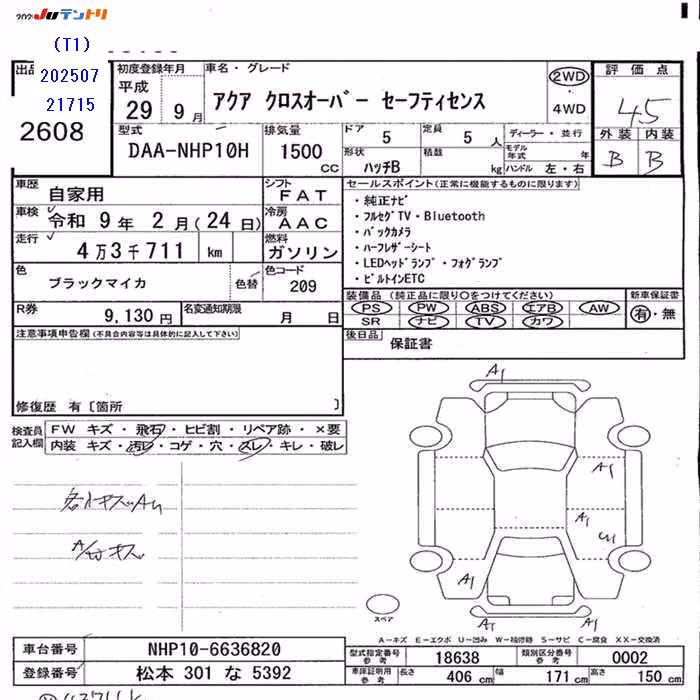 JUテントリ
(T1)
202507
21715
出品
2608
初度登録年月
平成
29 9 月
車名・グレード
アクア クロスオーバー セーフティセンス
2WD
・
4WD
評価点
4.5
外装 内装
B B
型式
DAA-NHP10H
排気量
1500 CC
ドア 5
定員 5 人
形状 ハッチB
積載 kg
ディーラー・並行
モデル年式 年
ハンドル 左・右
車歴 自家用
シフト FAT
車検 令和 9 年 2 月 (24 日)
冷房 AAC
走行 4万3千711 km
燃料 ガソリン
色 ブラックマイカ
色替
色コード 209
R券 9,130 円
名変通知期限 月 日
セールスポイント(正常に機能するものに限ります)
・純正ナビ
・フルセグTV・Bluetooth
・バックカメラ
・ハーフレザーシート
・LEDヘッドランプ・フォグランプ
・ビルトインETC
装備品 (純正品に限り○をつけてください)
PS PW ABS エアB AW
SR ナビ TV カワ
新車保証書
有・無
後日品 保証書
注意事項申告欄(不具合内容等は具体的に記入して下さい)
修復歴 有〔箇所 〕
検査員記入欄
FW キズ・飛石・ヒビ割・リペア跡・×要
内装 キズ・汚レ・コゲ・穴・スレ・キレ・破レ
A1
A1
A1
A1
A1 A1
スペア
A-キズ E-エクボ U-凹み W-補修跡 S-サビ C-腐食 XX-交換済
車台番号 NHP10-6636820
登録番号 松本 301 な 5392
型式指定番号 参考 18638
類別区分番号 参考 0002
車庫証明用 参考
長さ 406 cm
幅 171 cm
高さ 150 cm